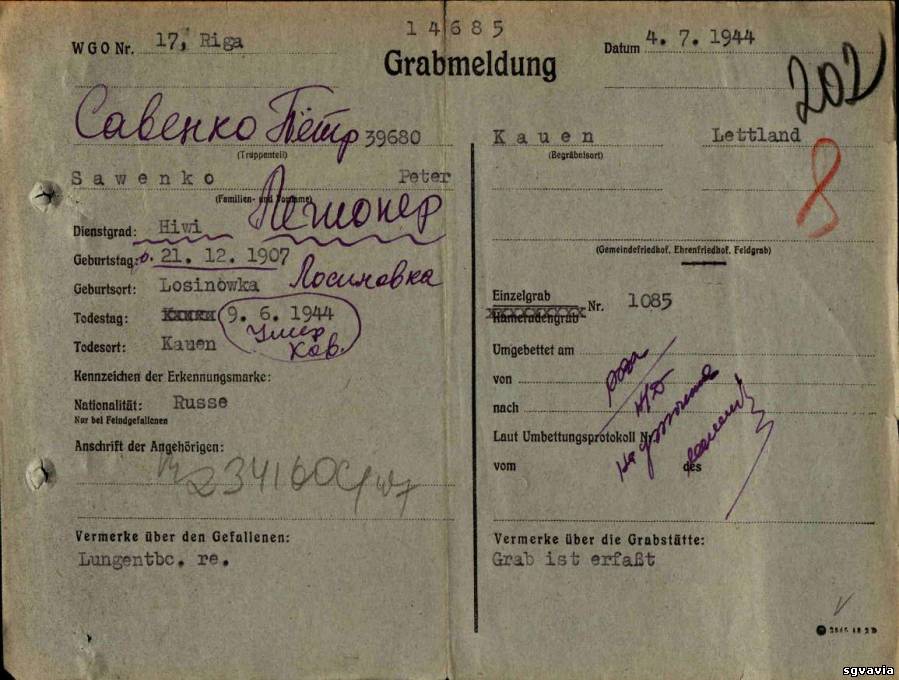 14685
WGO Nr. 17, Riga
Grabmeldung
Datum 4. 7. 1944
202
Савенко Пётр 39680
(Truppenteil)
Sawenko Peter
(Familien- und Vorname)
Легионер
Dienstgrad: Hiwi
Geburtstag: 21. 12. 1907
Geburtsort: Losinowka Лосиновка
Todestag: 9. 6. 1944
Умер
Ков.
Todesort: Kauen
Kennzeichen der Erkennungsmarke:
Nationalität: Russe
Nur bei Feindgefallenen
Anschrift der Angehörigen:
Vermerke über den Gefallenen:
Lungentbc. re.
Kauen Lettland
(Begräbnisort)
8
(Gemeindefriedhof, Ehrenfriedhof, Feldgrab)
Einzelgrab
Kameradengrab Nr. 1085
Umgebettet am
von
nach
Laut Umbettungsprotokoll Nr.
vom des
Vermerke über die Grabstätte:
Grab ist erfaßt
sgvavia